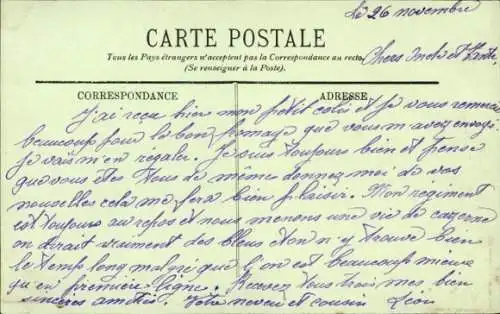 le 26 novembre
CARTE POSTALE
Tous les Pays étrangers n'acceptent pas la Correspondance au recto.
(Se renseigner à la Poste).
Chers Oncle et Tante
CORRESPONDANCE
ADRESSE
J'ai reçu bien mon petit colis et je vous remercie
beaucoup pour le bon fromage que vous m'avez envoyé
je vais m'en regaler. Je suis toujours bien et pense
que vous etes tous de même donnez moi de vos
nouvelles cela me fera bien plaisir. Mon regiment
est toujours au repos et nous menons une vie de caserne
on dirait vraiment des bleus et on n'y trouve bien
le temps long malgré que l'on est beaucoup mieux
qu'en première ligne. Recevez tous trois mes bien
sincères amitiés. Votre neveu et cousin Léon